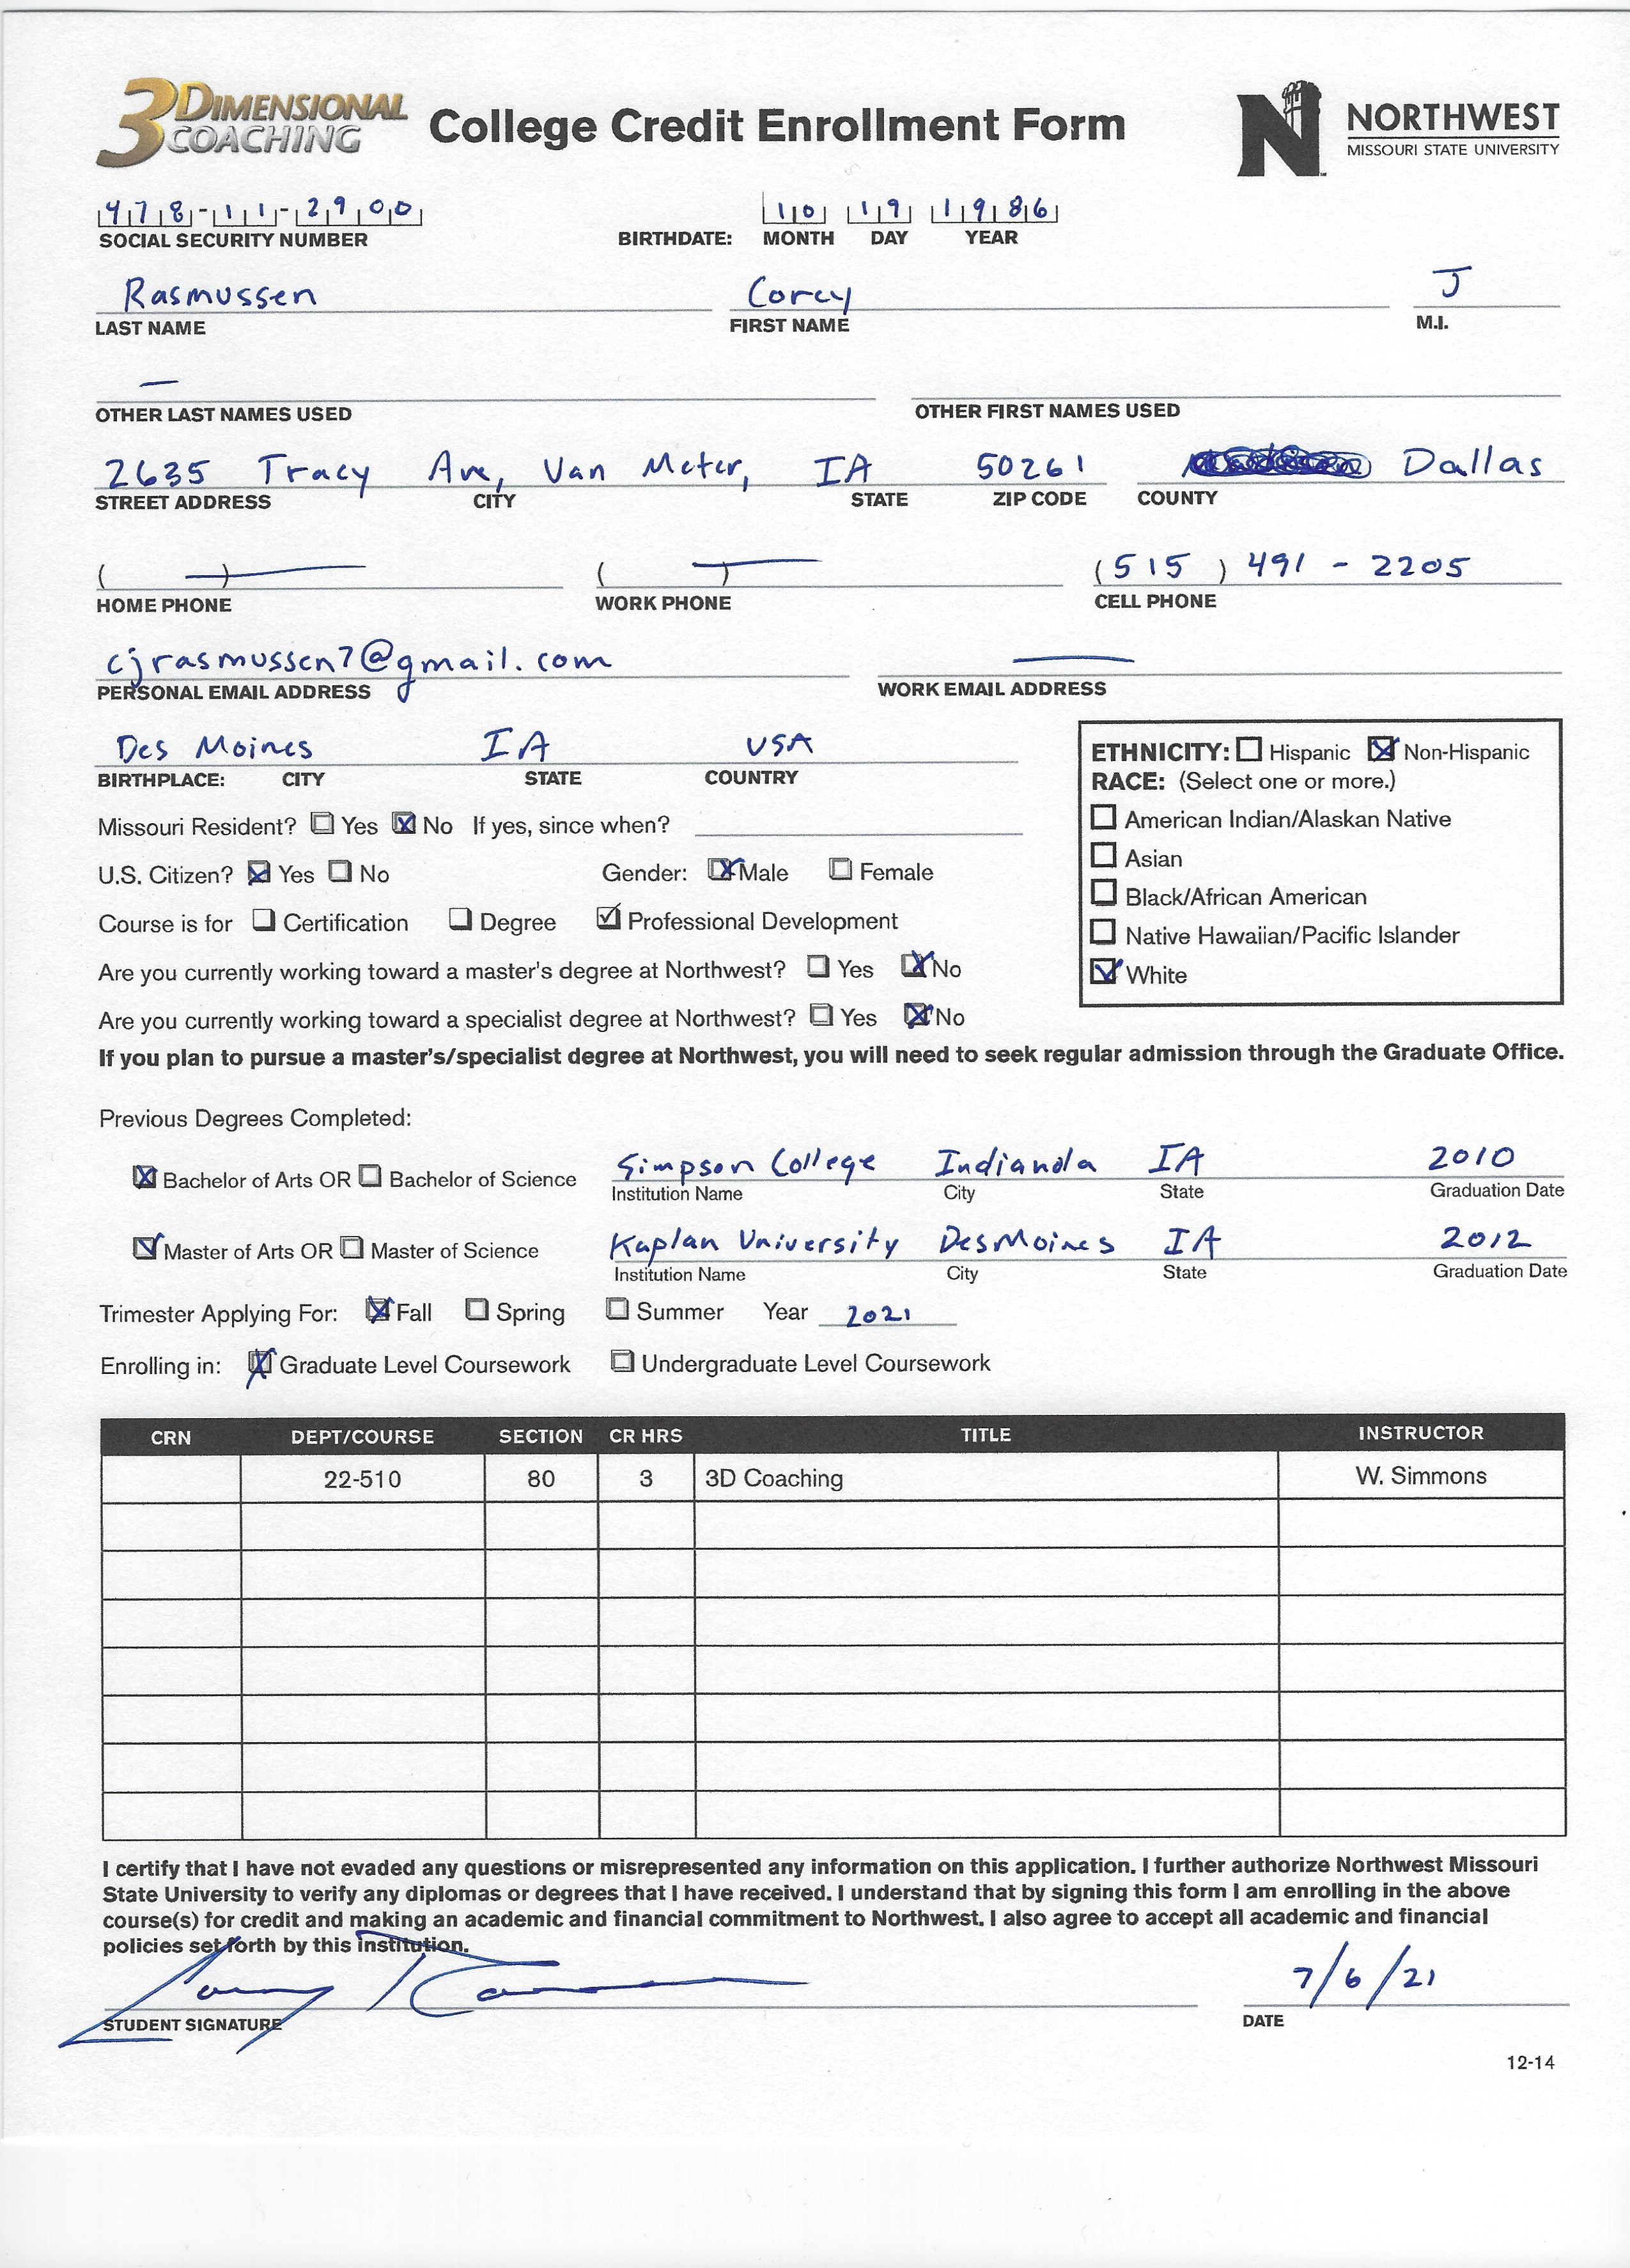 3DIMENSIONAL COACHING
College Credit Enrollment Form
N NORTHWEST
MISSOURI STATE UNIVERSITY
478-11-2900 10 19 1986
SOCIAL SECURITY NUMBER BIRTHDATE: MONTH DAY YEAR
Rasmussen Corey J
LAST NAME FIRST NAME M.I.
—
OTHER LAST NAMES USED OTHER FIRST NAMES USED
2635 Tracy Ave, Van Meter, IA 50261 Dallas
STREET ADDRESS CITY STATE ZIP CODE COUNTY
( —) ( —) (515) 491-2205
HOME PHONE WORK PHONE CELL PHONE
cjrasmussen7@gmail.com —
PERSONAL EMAIL ADDRESS WORK EMAIL ADDRESS
Des Moines IA USA
BIRTHPLACE: CITY STATE COUNTRY
ETHNICITY: ☐ Hispanic ☒ Non-Hispanic
RACE: (Select one or more.)
☐ American Indian/Alaskan Native
☐ Asian
☐ Black/African American
☐ Native Hawaiian/Pacific Islander
☒ White
Missouri Resident? ☐ Yes ☒ No If yes, since when?
U.S. Citizen? ☒ Yes ☐ No Gender: ☒ Male ☐ Female
Course is for ☐ Certification ☐ Degree ☑ Professional Development
Are you currently working toward a master's degree at Northwest? ☐ Yes ☒ No
Are you currently working toward a specialist degree at Northwest? ☐ Yes ☒ No
If you plan to pursue a master's/specialist degree at Northwest, you will need to seek regular admission through the Graduate Office.
Previous Degrees Completed:
☒ Bachelor of Arts OR ☐ Bachelor of Science Simpson College Indianola IA 2010
Institution Name City State Graduation Date
☒ Master of Arts OR ☐ Master of Science Kaplan University Des Moines IA 2012
Institution Name City State Graduation Date
Trimester Applying For: ☒ Fall ☐ Spring ☐ Summer Year 2021
Enrolling in: ☒ Graduate Level Coursework ☐ Undergraduate Level Coursework
CRN DEPT/COURSE SECTION CR HRS TITLE INSTRUCTOR
22-510 80 3 3D Coaching W. Simmons
I certify that I have not evaded any questions or misrepresented any information on this application. I further authorize Northwest Missouri
State University to verify any diplomas or degrees that I have received. I understand that by signing this form I am enrolling in the above
course(s) for credit and making an academic and financial commitment to Northwest. I also agree to accept all academic and financial
policies set forth by this institution.
7/6/21
STUDENT SIGNATURE DATE
12-14